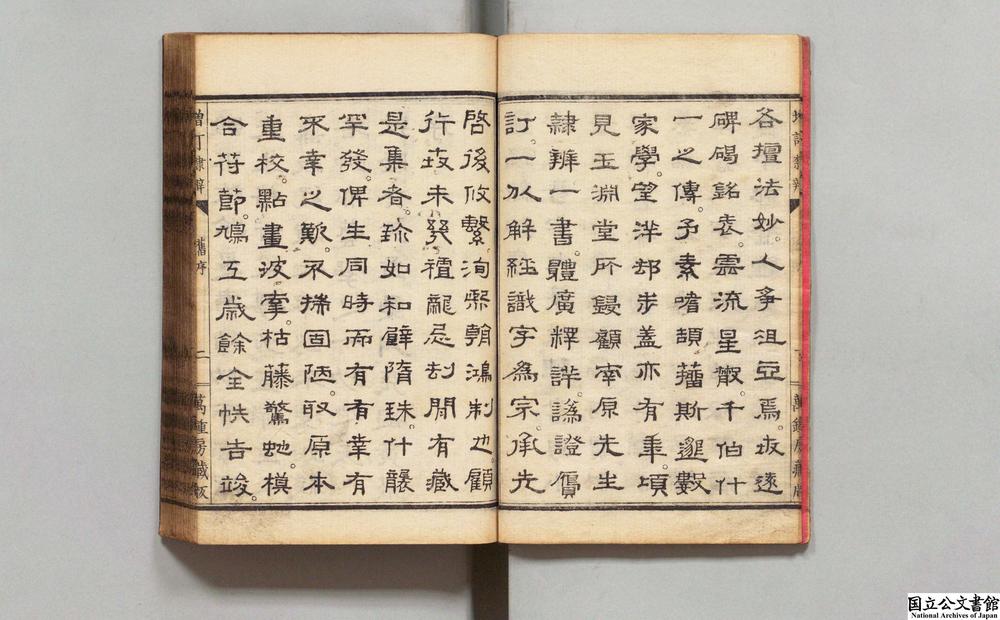 各擅法妙。人爭沮亞焉。故遠
碑碣銘表。雲流星散。千伯什
一之傳。予素嗜頡籀斯邈數
家學。望洋却步。蓋亦有年。頃
見玉淵堂所鋟顧南原先生
隸辨一書。體廣釋詳。譌證贋
訂。一以解經識字為宗。承先
啓後攸繫。洵熙朝鴻制也。顧
行 未幾 龍忌刦間有藏
是集者。珍如和璧隋珠。什襲
罕發。俾生同時而有有幸有
不幸之歎。不揣固陋。取原本
重校。點畫波 。枯藤驚虵。模
合符節。鳩工歲餘全帙告竣。
增訂隸辨
舊序
二
萬重房藏板
国立公文書館
National Archives of Japan